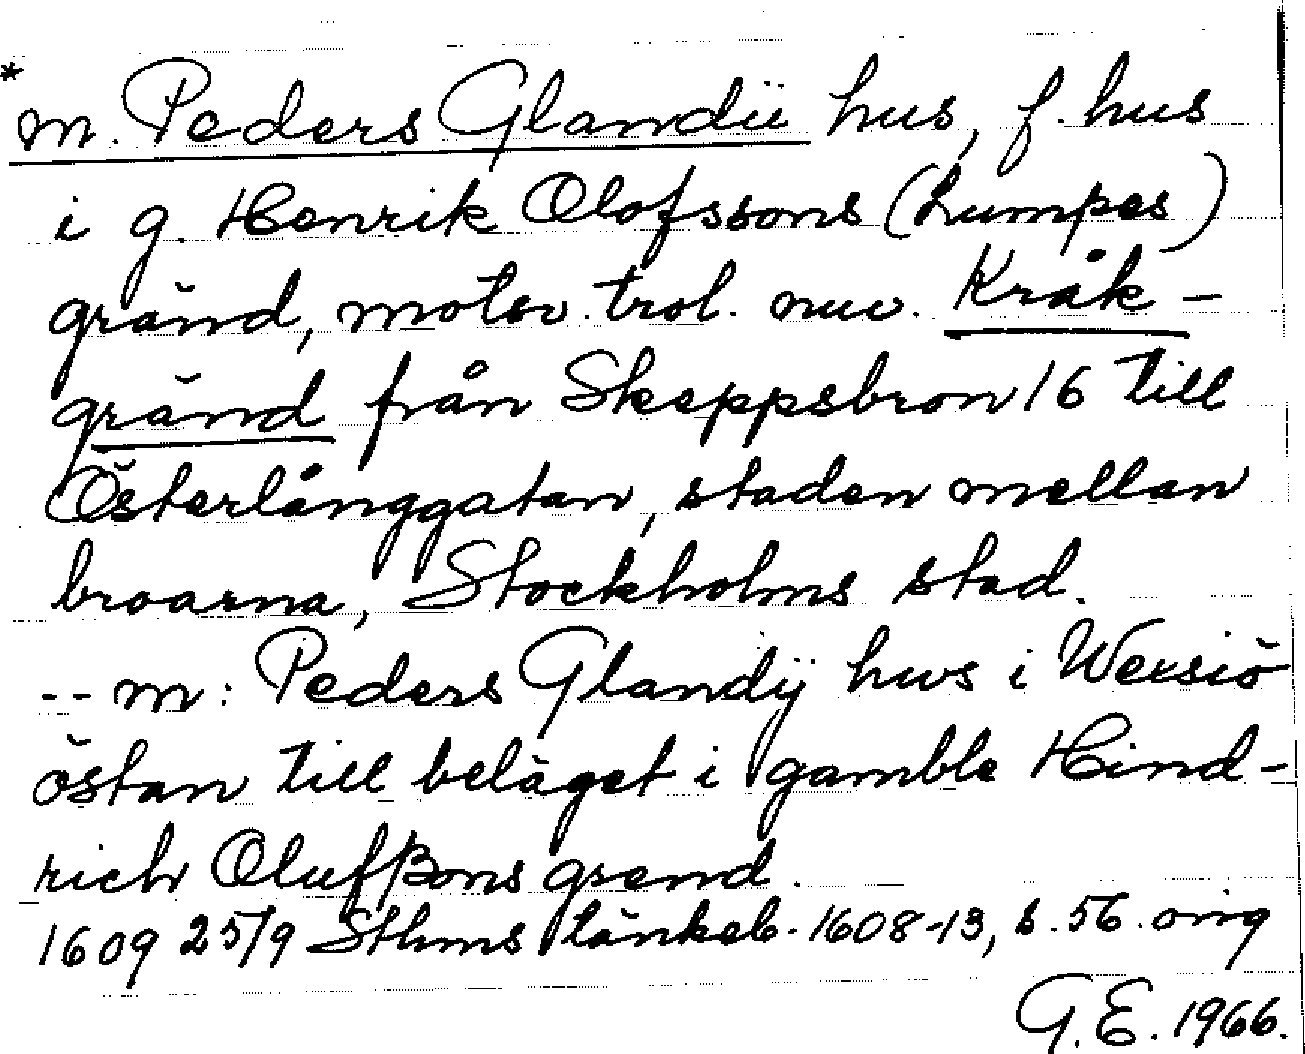 * m. Peders Glandii hus, f. hus
i g. Henrik Olofssons (Lumpes)
gränd, motsv. trol. nuv. Kråk-
gränd från Skeppsbron 16 till
Österlånggatan, staden mellan
broarna, Stockholms stad.
-- m: Peders Glandij hws i Wersiö
östan till beläget i gamble Hind-
rich Olufßons grend.
1609 25/9 Sthms tänkeb. 1608-13, s. 56. orig
G.E. 1966.